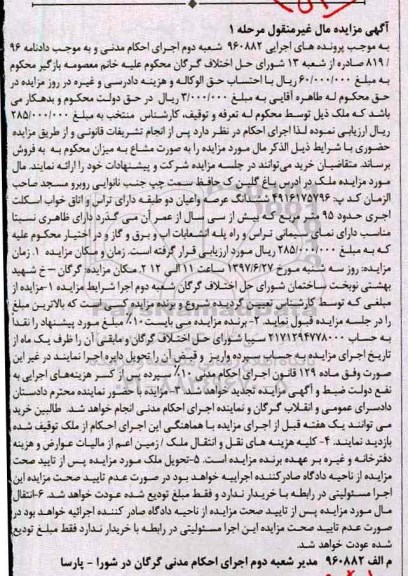 آگهی مزایده مال غیرمنقول مرحله ۱
به موجب پرونده های اجرایی ۹۶۰۸۸۲ شعبه دوم اجرای احکام مدنی و به موجب دادنامه ۹۶
/ ۸۱۹ صادره از شعبه ۱۳ شورای حل اختلاف گرگان محکوم علیه خانم معصومه بازگیر محکوم
به مبلغ ۶۰/۰۰۰/۰۰۰ ریال با احتساب حق الوکاله و هزینه دادرسی و غیره در روز مزایده در
حق محکوم له طاهره آقایی به مبلغ ۳/۰۰۰/۰۰۰ ریال در حق دولت محکوم و بدهکار می
باشد که ملک ذیل توسط محکوم له تعرفه و توقیف، کارشناس منتخب به مبلغ ۲۸۵/۰۰۰/۰۰۰
ریال ارزیابی نموده لذا اجرای احکام در نظر دارد پس از انجام تشریفات قانونی و از طریق مزایده
حضوری با شرایط ذیل الذکر مال مورد مزایده را به صورت مشاع به میزان محکوم به به فروش
برساند. متقاضیان خرید می‌توانند در جلسه مزایده شرکت و پیشنهادات خود را ارائه نمایند. مال
مورد مزایده ملک به آدرس باغ گلبن ک حافظ سمت چپ جنب نانوایی روبرو مسجد صاحب
الزمان کد پ: ۴۹۱۶۱۷۵۷۹۶ ششدانگ عرصه و اعیان دو طبقه دارای تراس و اتاق خواب اسکلت
اجری حدود ۹۵ متر مربع که بیش از سی سال از عمر آن می گذرد دارای ظاهری نسبتا
مناسب دارای نمای سیمانی تراس و راه پله انشعابات آب و برق و گاز و در اختیار محکوم علیه
که به مبلغ ۲۸۵/۰۰۰/۰۰۰ ریال مورد ارزیابی قرار گرفته است. زمان و مکان مزایده ۱. زمان
مزایده: روز سه شنبه مورخ ۱۳۹۷/۶/۲۷ ساعت ۱۱ الی ۱۲ ۲. مکان مزایده: گرگان – خ شهید
بهشتی نوبخت ساختمان شورای حل اختلاف گرگان شعبه دوم اجرا شرایط مزایده ۱-مزایده از
مبلغی که توسط کارشناس تعیین گردیده شروع و برنده مزایده کسی است که بالاترین مبلغ
را در جلسه مزایده قبول نماید. ۲- برنده مزایده می بایست ۱۰٪ مبلغ مورد پیشنهاد را نقدا
به حساب ۲۱۷۱۲۹۴۷۷۸۰۰۰ سیبی شورای حل اختلاف گرگان و مابقی آن را ظرف یک ماه از
تاریخ اجرای مزایده به حساب سپرده واریز و قبض آن را تحویل دایره اجرا نمایند در غیر این
صورت وفق ماده ۱۲۹ قانون اجرای احکام مدنی ۱۰٪ سپرده پس از کسر هزینه‌های اجرایی به
نفع دولت ضبط و آگهی مزایده تجدید خواهد شد. ۳-مزایده با حضور نماینده محترم دادستان
دادسرای عمومی و انقلاب گرگان و نماینده اجرای احکام مدنی انجام خواهد شد. طالبین خرید
می توانند یک هفته قبل از اجرای مزایده با هماهنگی این اجرای احکام از ملک توقیف شده
بازدید نمایند. ۴- کلیه هزینه های نقل و انتقال ملک / زمین اعم از مالیات عوارض و هزینه
دفترخانه و غیره بر عهده برنده مزایده است. ۵-تحویل ملک مورد مزایده پس از تایید صحت
مزایده از ناحیه دادگاه صادرکننده اجراییه خواهد بود در صورت عدم تایید صحت مزایده این
اجرا مسئولیتی در رابطه با خریدار ندارد و فقط مبلغ تودیع شده عودت خواهد شد. ۶-انتقال
مال مورد مزایده پس از تایید صحت مزایده از ناحیه دادگاه صادر کننده اجرائیه خواهد بود در
صورت عدم تایید صحت مزایده این اجرا مسئولیتی در رابطه با خریدار ندارد فقط مبلغ تودیع
شده عودت خواهد شد.
م الف ۹۶۰۸۸۲ مدیر شعبه دوم اجرای احکام مدنی گرگان در شورا - پارسا